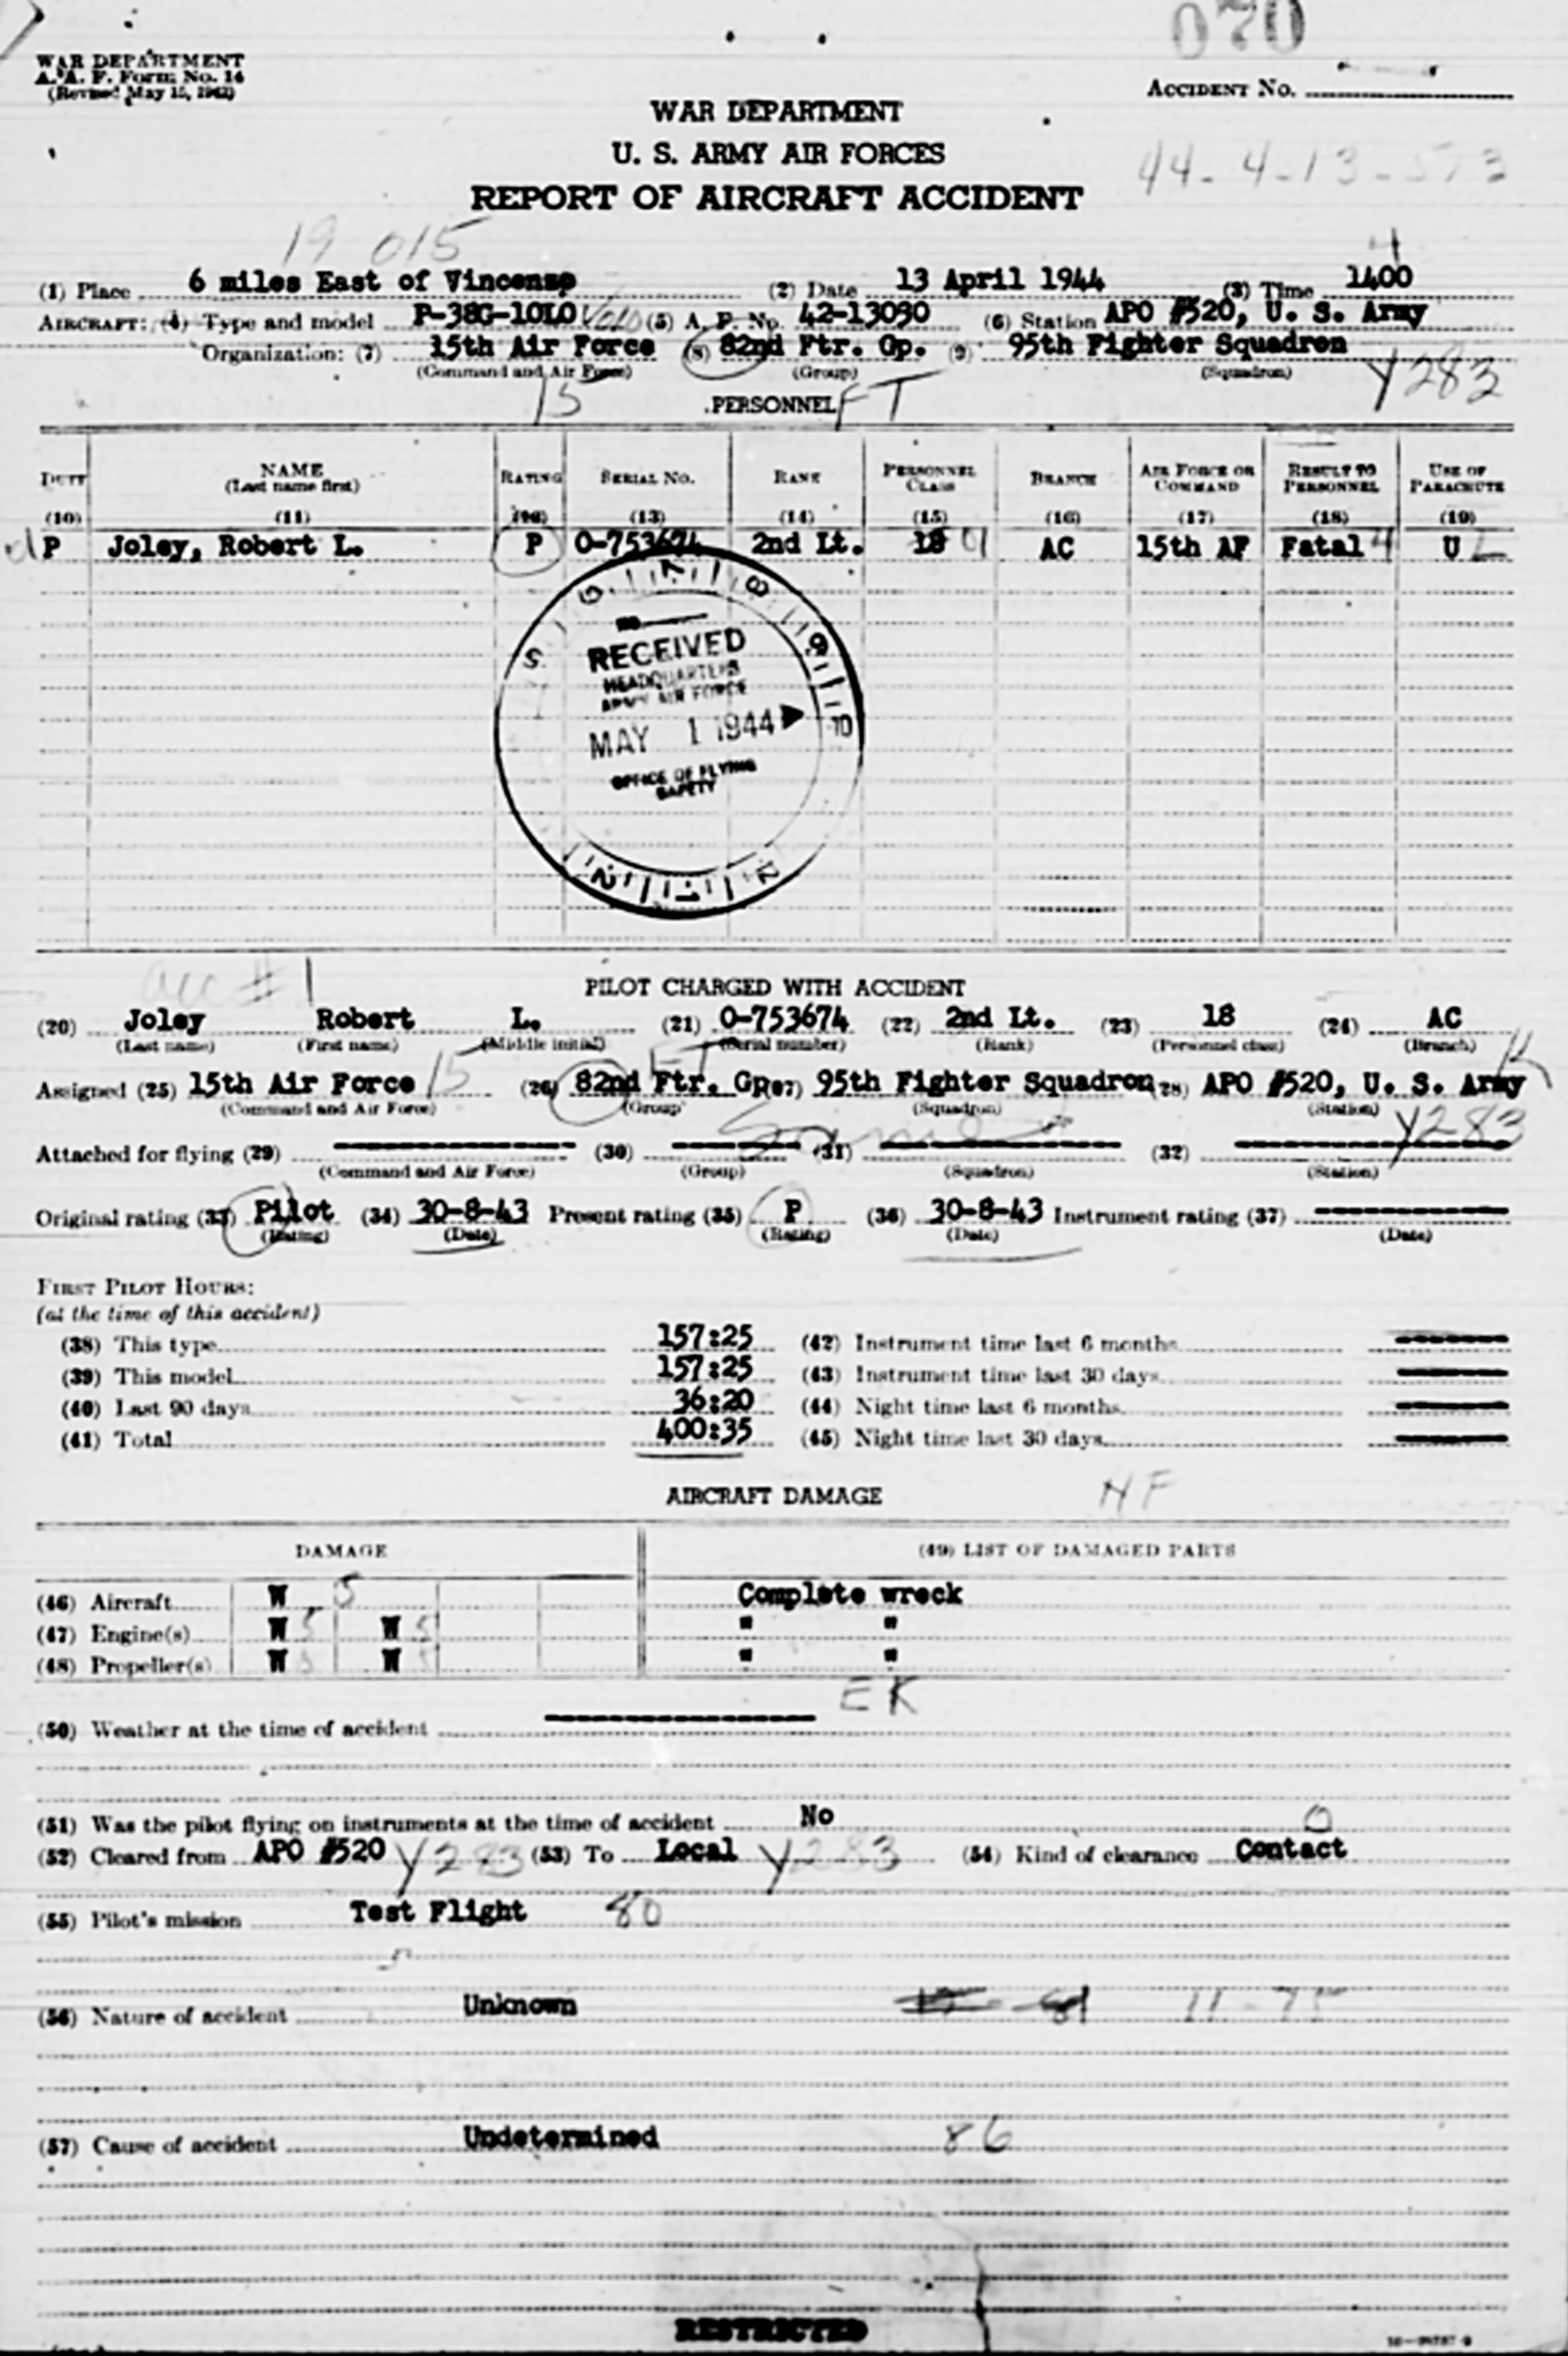 070
WAR DEPARTMENT
A. A. F. Form No. 14
(Revised May 15, 1942)
ACCIDENT No.
WAR DEPARTMENT
U. S. ARMY AIR FORCES
44-4-13-573
REPORT OF AIRCRAFT ACCIDENT
19 015
4
(1) Place 6 miles East of Vincenzo (2) Date 13 April 1944 (3) Time 1400
AIRCRAFT: (4) Type and model P-38G-10LO (5) A. F. No. 42-13090 (6) Station APO #520, U. S. Army
Organization: (7) 15th Air Force (8) 82nd Ftr. Gp. (9) 95th Fighter Squadron
(Command and Air Force) (Group) (Squadron) Y283
15 PERSONNEL FT
DUTY NAME (Last name first) RATING SERIAL NO. RANK PERSONNEL CLASS BRANCH AIR FORCE OR COMMAND RESULT TO PERSONNEL USE OF PARACHUTE
(10) (11) (12) (13) (14) (15) (16) (17) (18) (19)
P Joley, Robert L. P O-753674 2nd Lt. 18 AC 15th AF Fatal 4 U
RECEIVED
HEADQUARTERS
ARMY AIR FORCE
MAY 1 1944
OFFICE OF FLYING
SAFETY
acc # 1
PILOT CHARGED WITH ACCIDENT
(20) Joley Robert L. (21) O-753674 (22) 2nd Lt. (23) 18 (24) AC
(Last name) (First name) (Middle initial) (Serial number) (Rank) (Personnel class) (Branch)
Assigned (25) 15th Air Force 15 (26) 82nd Ftr. Gp. (27) 95th Fighter Squadron (28) APO #520, U. S. Army
(Command and Air Force) (Group) (Squadron) (Station)
Same Y283
Attached for flying (29) (30) (31) (32)
(Command and Air Force) (Group) (Squadron) (Station)
Original rating (33) Pilot (34) 30-8-43 Present rating (35) P (36) 30-8-43 Instrument rating (37)
(Rating) (Date) (Rating) (Date) (Date)
FIRST PILOT HOURS:
(at the time of this accident)
(38) This type 157:25 (42) Instrument time last 6 months
(39) This model 157:25 (43) Instrument time last 30 days
(40) Last 90 days 36:20 (44) Night time last 6 months
(41) Total 400:35 (45) Night time last 30 days
AIRCRAFT DAMAGE NF
DAMAGE (49) LIST OF DAMAGED PARTS
(46) Aircraft W 5 Complete wreck
(47) Engine(s) W 5 W 5 " "
(48) Propeller(s) W 5 W 5 " "
EK
(50) Weather at the time of accident
(51) Was the pilot flying on instruments at the time of accident No 0
(52) Cleared from APO #520 Y283 (53) To Local Y283 (54) Kind of clearance Contact
(55) Pilot's mission Test Flight 80
(56) Nature of accident Unknown
(57) Cause of accident Undetermined 86
RESTRICTED